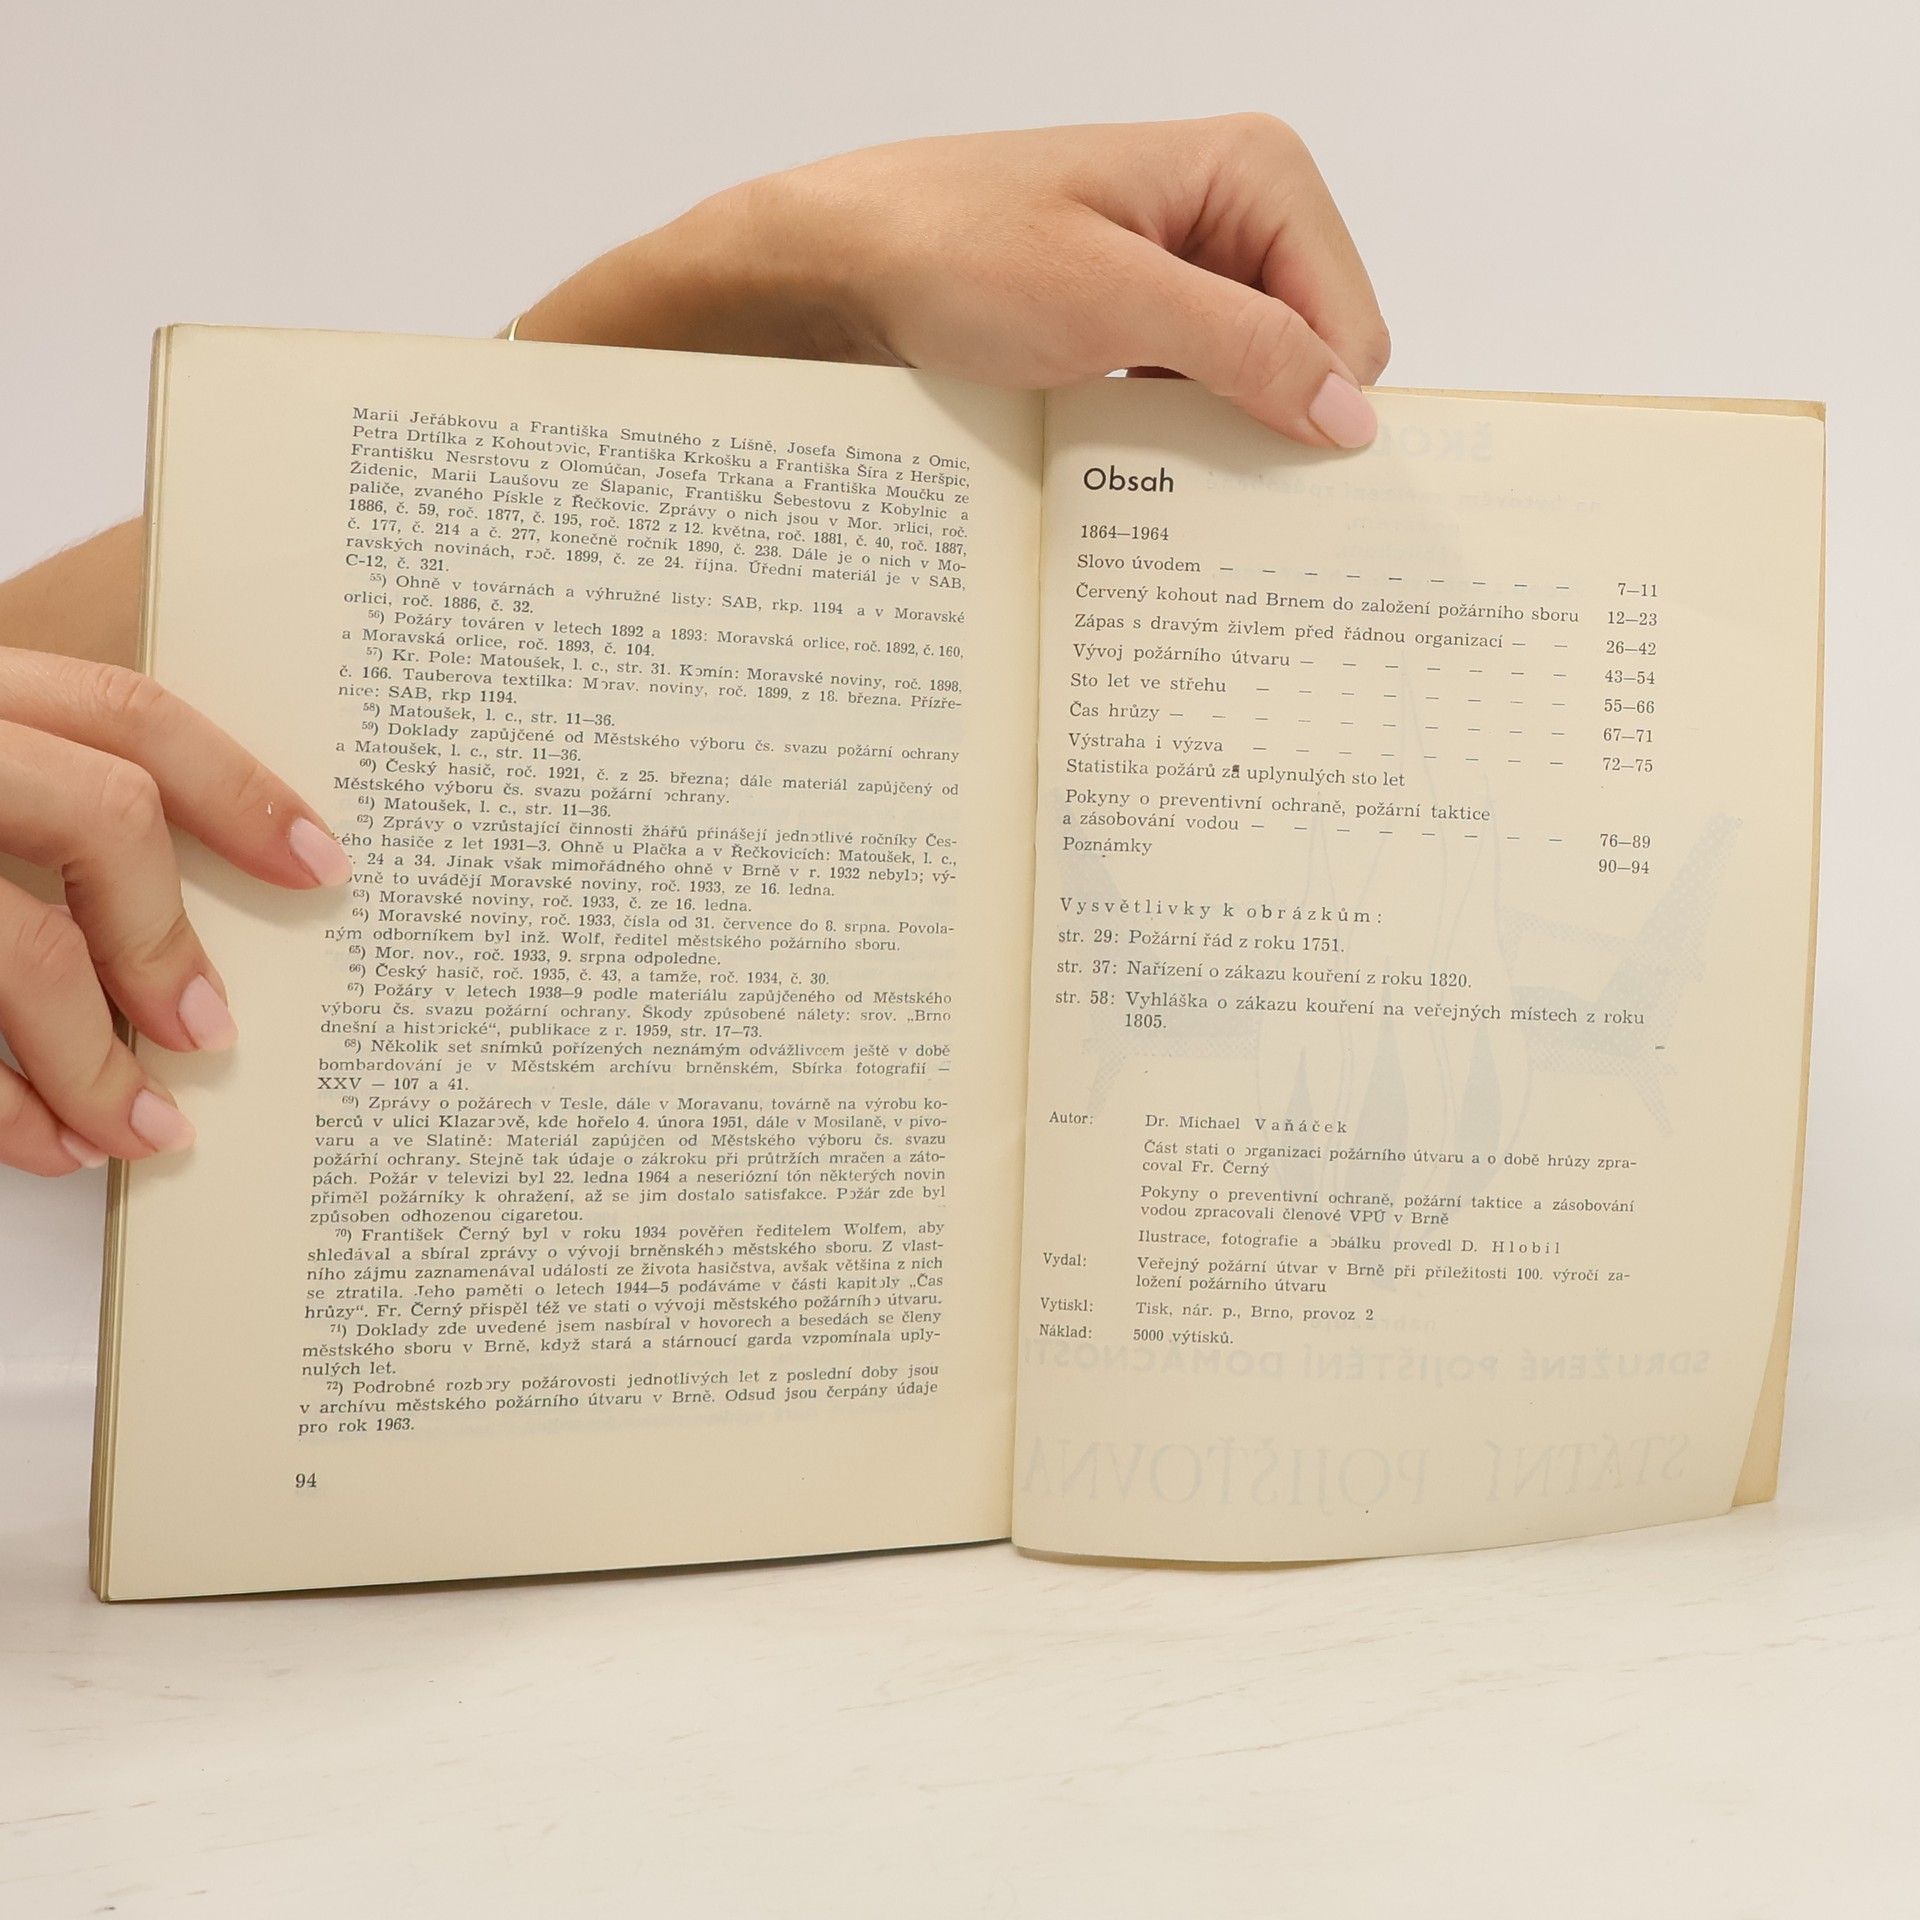 Marii Jeřábkovu a Františka Smutného z Líšně, Josefa Šimona z Omic,
Petra Drtílka z Kohoutovic, Františka Krkošku a Františka Šíra z Heršpic,
Františku Nesrstovu z Olomúčan, Josefa Trkana a Františka Moučku ze
Židenic, Marii Laušovu ze Šlapanic, Františku Šebestovu z Kobylnic a
paliče, zvaného Pískle z Řečkovic. Zprávy o nich jsou v Mor. orlici, roč.
1886, č. 59, roč. 1877, č. 195, roč. 1872 z 12. května, roč. 1881, č. 40, roč. 1887,
č. 177, č. 214 a č. 277, konečně ročník 1890, č. 238. Dále je o nich v Mo-
ravských novinách, roč. 1899, č. ze 24. října. Úřední materiál je v SAB,
C-12, č. 321.
55) Ohně v továrnách a výhružné listy: SAB, rkp. 1194 a v Moravské
orlici, roč. 1886, č. 32.
56) Požáry továren v letech 1892 a 1893: Moravská orlice, roč. 1892, č. 160,
a Moravská orlice, roč. 1893, č. 104.
57) Kr. Pole: Matoušek, l. c., str. 31. Komín: Moravské noviny, roč. 1898,
č. 166. Tauberova textilka: Morav. noviny, roč. 1899, z 18. března. Přízře-
nice: SAB, rkp 1194.
58) Matoušek, l. c., str. 11—36.
59) Doklady zapůjčené od Městského výboru čs. svazu požární ochrany
a Matoušek, l. c., str. 11—36.
60) Český hasič, roč. 1921, č. z 25. března; dále materiál zapůjčený od
Městského výboru čs. svazu požární ochrany.
61) Matoušek, l. c., str. 11—36.
62) Zprávy o vzrůstající činnosti žhářů přinášejí jednotlivé ročníky Čes-
kého hasiče z let 1931—3. Ohně u Plačka a v Řečkovicích: Matoušek, l. c.,
24 a 34. Jinak však mimořádného ohně v Brně v r. 1932 nebylo; vý-
ovně to uvádějí Moravské noviny, roč. 1933, ze 16. ledna.
63) Moravské noviny, roč. 1933, č. ze 16. ledna.
64) Moravské noviny, roč. 1933, čísla od 31. července do 8. srpna. Povola-
ným odborníkem byl inž. Wolf, ředitel městského požárního sboru.
65) Mor. nov., roč. 1933, 9. srpna odpoledne.
66) Český hasič, roč. 1935, č. 43, a tamže, roč. 1934, č. 30.
67) Požáry v letech 1938—9 podle materiálu zapůjčeného od Městského
výboru čs. svazu požární ochrany. Škody způsobené nálety: srov. „Brno
dnešní a historické“, publikace z r. 1959, str. 17—73.
68) Několik set snímků pořízených neznámým odvážlivcem ještě v době
bombardování je v Městském archívu brněnském, Sbírka fotografií —
XXV — 107 a 41.
69) Zprávy o požárech v Tesle, dále v Moravanu, továrně na výrobu ko-
berců v ulici Klazarově, kde hořelo 4. února 1951, dále v Mosilaně, v pivo-
varu a ve Slatině: Materiál zapůjčen od Městského výboru čs. svazu
požární ochrany. Stejně tak údaje o zákroku při průtržích mračen a záto-
pách. Požár v televizi byl 22. ledna 1964 a neseriózní tón některých novin
přiměl požárníky k ohražení, až se jim dostalo satisfakce. Požár zde byl
způsoben odhozenou cigaretou.
70) František Černý byl v roku 1934 pověřen ředitelem Wolfem, aby
shledával a sbíral zprávy o vývoji brněnského městského sboru. Z vlast-
ního zájmu zaznamenával události ze života hasičstva, avšak většina z nich
se ztratila. Jeho paměti o letech 1944—5 podáváme v části kapitoly „Čas
hrůzy“. Fr. Černý přispěl též ve stati o vývoji městského požárního útvaru.
71) Doklady zde uvedené jsem nasbíral v hovorech a besedách se členy
městského sboru v Brně, když stará a stárnoucí garda vzpomínala uply-
nulých let.
72) Podrobné rozbory požárovosti jednotlivých let z poslední doby jsou
v archívu městského požárního útvaru v Brně. Odsud jsou čerpány údaje
pro rok 1963.
94
Obsah
1864—1964
Slovo úvodem — — — — — — — — — 7—11
Červený kohout nad Brnem do založení požárního sboru 12—23
Zápas s dravým živlem před řádnou organizací — — 26—42
Vývoj požárního útvaru — — — — — — — 43—54
Sto let ve střehu — — — — — — — — 55—66
Čas hrůzy — — — — — — — — — — 67—71
Výstraha i výzva — — — — — — — — 72—75
Statistika požárů za uplynulých sto let
Pokyny o preventivní ochraně, požární taktice
a zásobování vodou — — — — — — — — 76—89
Poznámky 90—94
Vysvětlivky k obrázkům:
str. 29: Požární řád z roku 1751.
str. 37: Nařízení o zákazu kouření z roku 1820.
str. 58: Vyhláška o zákazu kouření na veřejných místech z roku
1805.
Autor: Dr. Michael Vaňáček
Část stati o organizaci požárního útvaru a o době hrůzy zpra-
coval Fr. Černý
Pokyny o preventivní ochraně, požární taktice a zásobování
vodou zpracovali členové VPÚ v Brně
Ilustrace, fotografie a obálku provedl D. Hlobil
Vydal: Veřejný požární útvar v Brně při příležitosti 100. výročí za-
ložení požárního útvaru
Vytiskl: Tisk, nár. p., Brno, provoz 2
Náklad: 5000 výtisků.